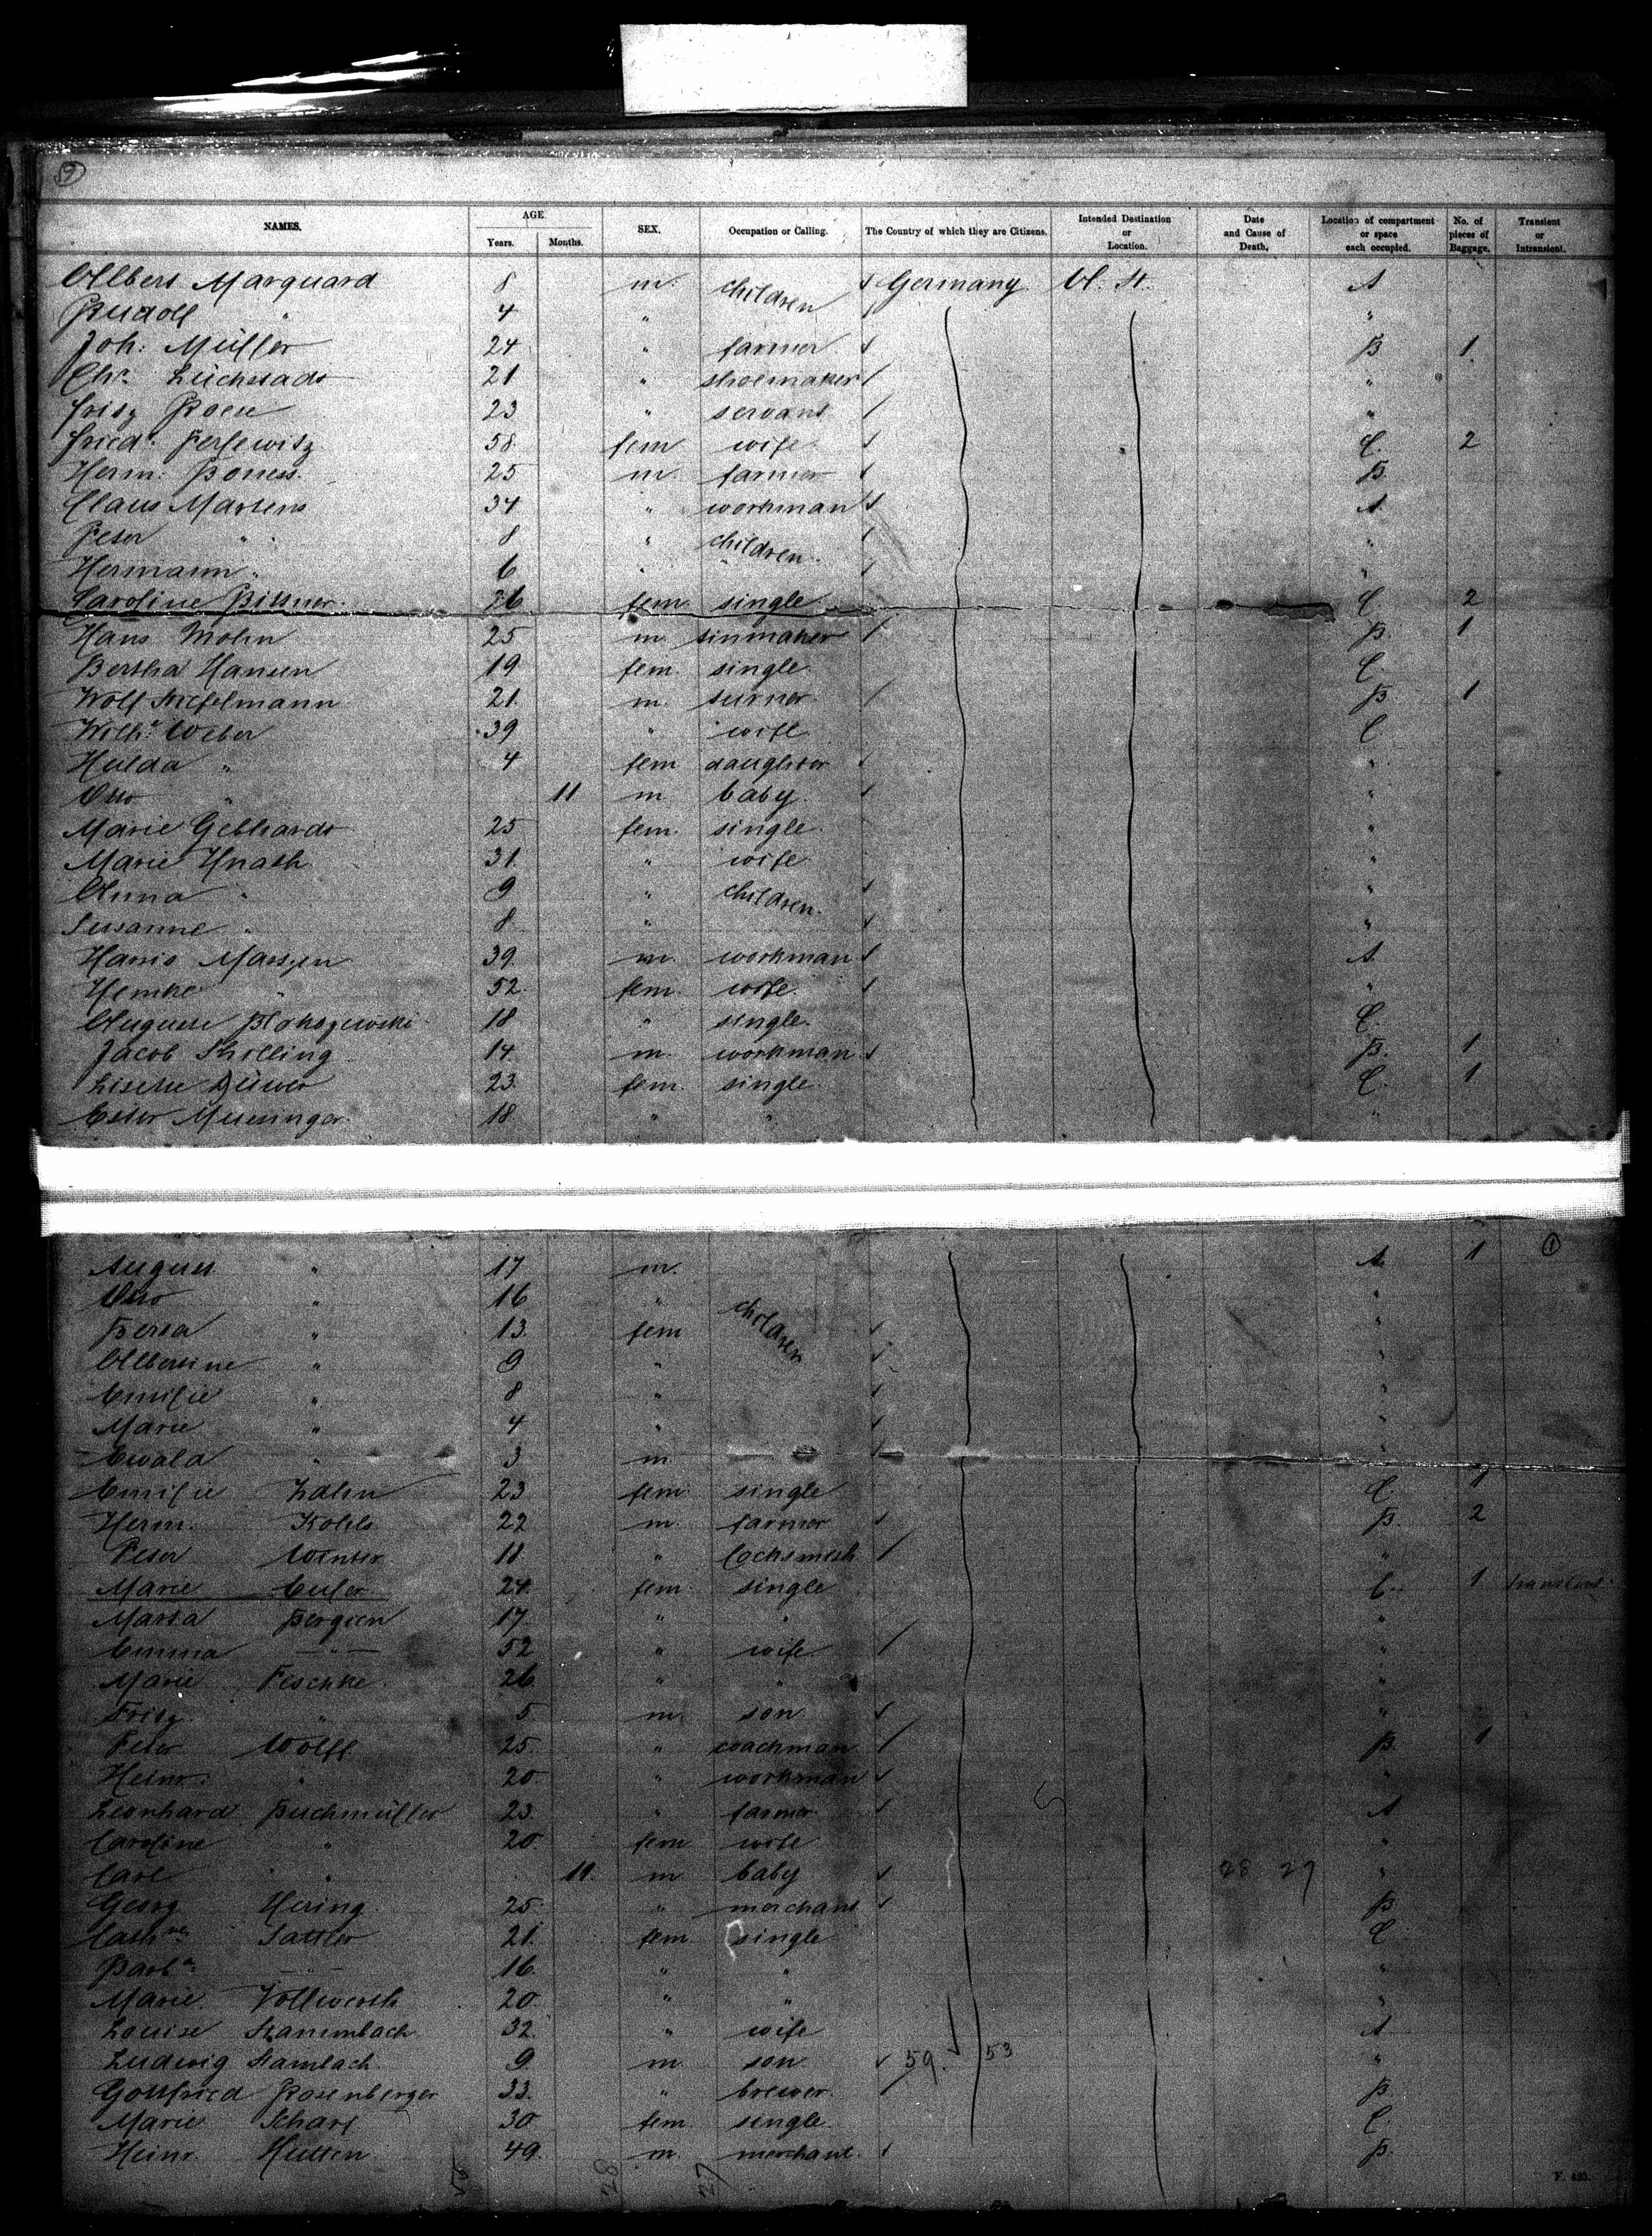 59
NAMES. AGE Years. Months. SEX. Occupation or Calling. The Country of which they are Citizens. Intended Destination or Location. Date and Cause of Death. Location of compartment or space each occupied. No. of pieces of Baggage. Transient or Intransient.
Albert Marquard 8 m. children Germany U. St. A
Rudolf " 4 " "
Joh. Müller 24 " farmer B 1
Chr. 21 " shoemaker "
Fritz 23 " servant "
Fried. 58 fem wife C. 2
Herm. Boness 25 m. farmer B.
Claus Martens 34 " workman A
Peter " 8 " children "
Hermann " 6 " " "
Caroline Bittner 26 fem single C 2
Hans Mohn 25 m tinmaker B. 1
Bertha Hansen 19 fem. single C.
Wolf 21. m. turner B 1
Wilh. Weber 39 " wife C
Hulda " 4 fem daughter "
Otto " 11 m. baby "
Marie Gebhardt 25 fem. single "
Marie Knath 31. " wife "
Anna " 9 " children. "
Susanne " 8 " "
39. m. workman A.
" 52 fem. wife. "
Auguste 18 " single C.
Jacob 14 m. workman B. 1
Lisette 23. fem. single. C. 1
Ester 18 " " "
August " 17 m. A. 1 1
Otto " 16 " children "
Berta " 13. fem "
Albertine " 9 " "
Emilie " 8 " "
Marie " 4 " "
Ewald " 3 m. "
Emilie Zahn 23 fem. single C. 1
Herm. Kohls 22 m. farmer B. 2
Peter Winter 18 " locksmith "
Marie Euler 24. fem. single C. 1 transient
Marta Bergien 17 " " "
Emma " 52 " wife. "
Marie Peschke 26 " " "
Fritz " 5 m. son "
Peter Wolff 25. " coachman B. 1
Heinr. " 20. " workman "
Leonhard Buchmüller 23. " farmer A
Caroline " 20. fem wife "
Carl " 11. m baby 28 27 "
Georg Hering 25. " merchant B
Cath. Sattler 21. fem single C
Barb. " 16. " " "
Marie Vollwerth 20. " " "
Louise Stammbach 32. " wife A
Ludwig Stambach 9. m. son 59. 53 "
Gottfried Rosenberger 33. " brewer. B.
Marie Scharf 30 fem. single. C.
Heinr. Hutten 49. m. merchant. B.
28 27
F. 425.